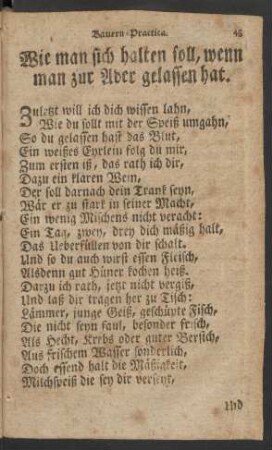 Bauern-Practica. 45
Wie man sich halten soll, wenn
man zur Ader gelassen hat.
Zuletzt will ich dich wissen lahn,
Wie du sollt mit der Speiß umgahn,
So du gelassen hast das Blut,
Ein weißes Eyrlein folg du mir,
Zum ersten iß, das rath ich dir,
Dazu ein klaren Wein,
Der soll darnach dein Trank seyn,
Wär er zu stark in seiner Macht,
Ein wenig Mischens nicht veracht:
Ein Tag, zwey, drey dich mäßig halt,
Das Ueberfüllen von dir schalt.
Und so du auch wirst essen Fleisch,
Alsdenn gut Hüner kochen heiß.
Darzu ich rath, jetzt nicht vergiß,
Und laß dir tragen her zu Tisch:
Lämmer, junge Geiß, geschüpte Fisch,
Die nicht seyn faul, besonder frisch,
Als Hecht, Krebs oder guter Bersich,
Aus frischem Wasser sonderlich,
Doch essend halt die Mäßigkeit,
Milchspeiß die sey dir verseyt,
Und